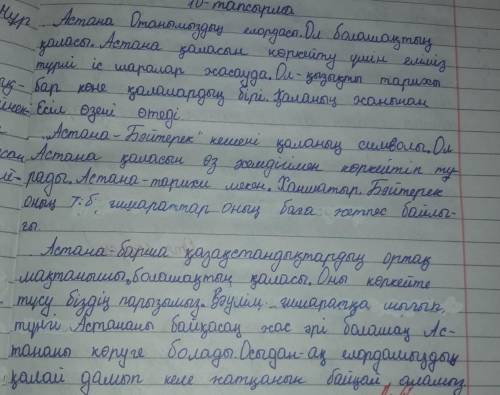 10-тапсырма
Нұр Астана Отанымыздың елордасы. Ол болашақтың
қаласы. Астана қаласын көркейту үшін еліміз
түрлі іс шаралар жасауда. Ол-қызықты тарихы
бар көне қалалардың бірі. Қаланың жанынан
Есіл өзені өтеді.
"Астана-Бәйтерек" кешені қаланың символы. Ол
Астана қаласын өз әсемдігімен көркейтіп тұ-
рады. Астана-тарихи мекен. Ханшатыр. Бәйтерек
оның т.б. ғимараттар оның баға жетпес байлы-
ғы.
Астана-барша қазақстандықтардың ортақ
мақтанышы, болашақтың қаласы. Оны көркейте
түсу біздің парызымыз. Зәулім ғимаратқа шығып,
түнгі Астананы байқасаң жас әрі болашақ Ас-
тананы көруге болады. Осыдан-ақ елордамыздың
қалай дамып келе жатқанын байқай аламыз